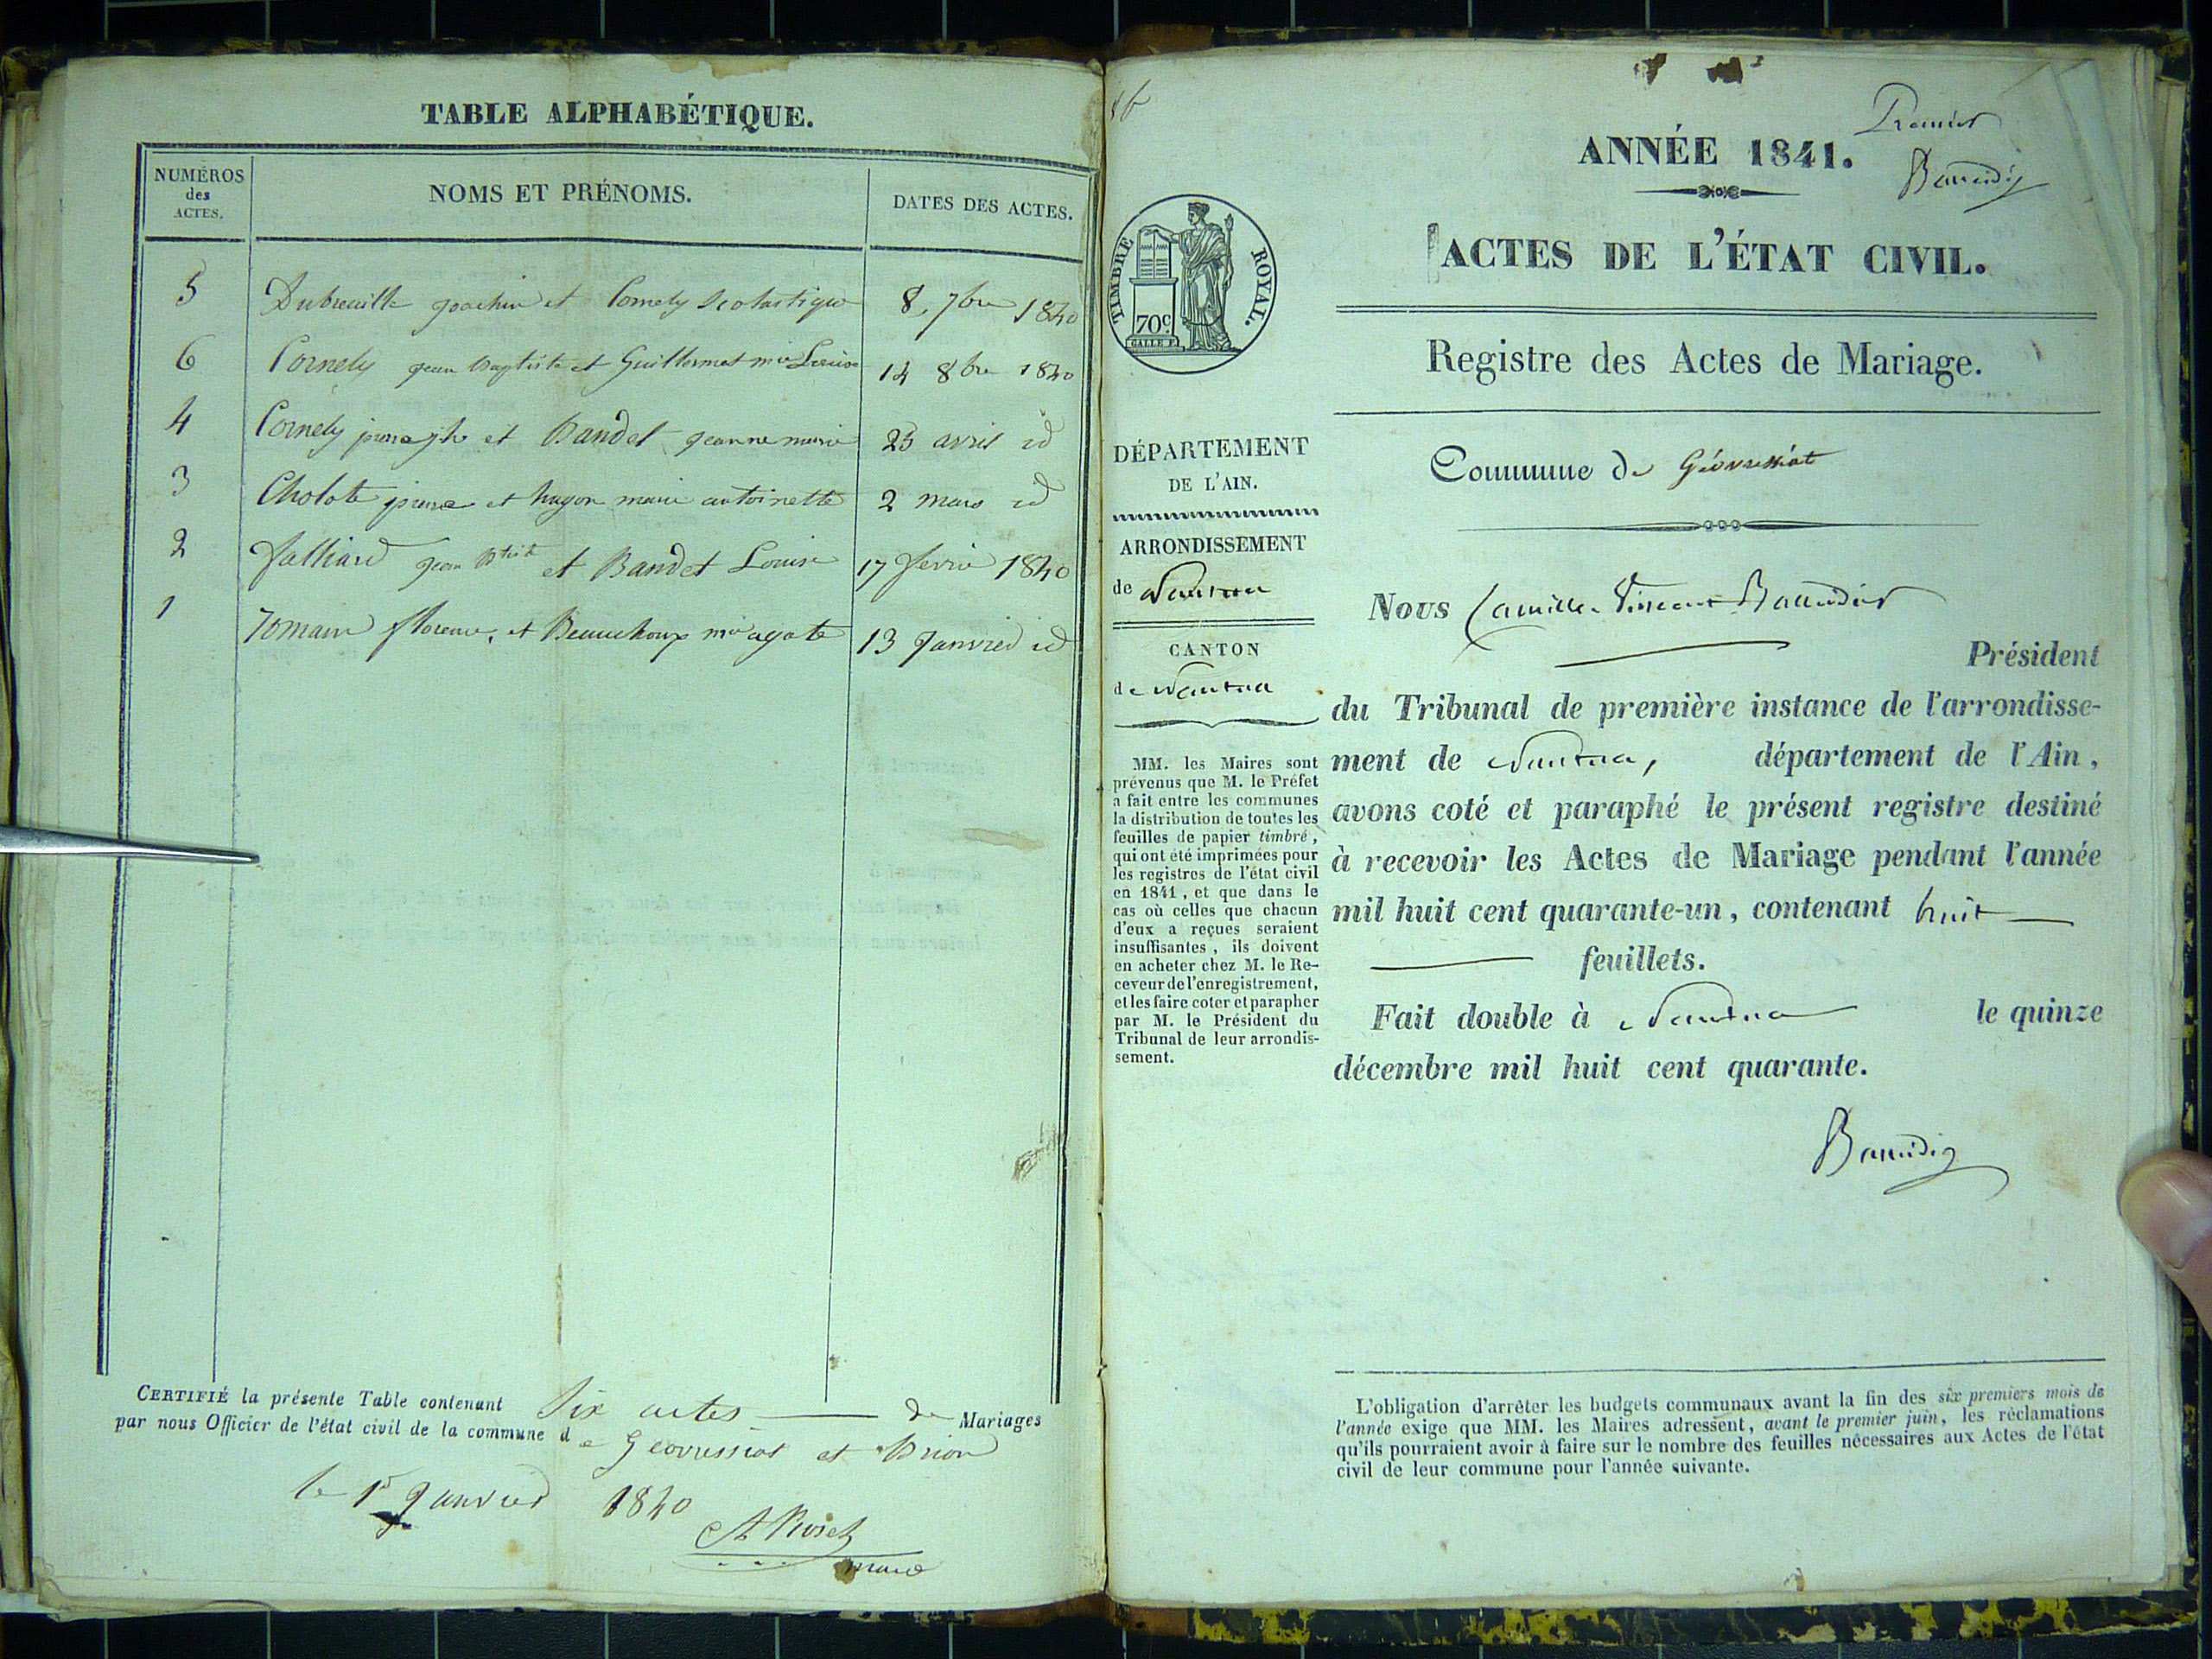 TABLE ALPHABÉTIQUE.
NUMÉROS
des
ACTES.
NOMS ET PRÉNOMS.
DATES DES ACTES.
5 Dubreuille joachin et Cornely Scolastique 8, 7bre 1840
6 Cornely jean Baptiste et Guillermet mie Louise 14 8bre 1840
4 Cornely et Bandet jeanne marie 25 avril id
3 Cholote pierre et hugon marie antoinette 2 mars id
2 jean Btiste et Bandet Louise 17 fevrié 1840
1 et Beauchoux mie agate 13 Janvied id
CERTIFIÉ la présente Table contenant Six actes de Mariages
par nous Officier de l'état civil de la commune de Geovressiat et Brion
le 1er Janvied 1840
maire
Premier
ANNÉE 1841.
Baundig
TIMBRE ROYAL.
70c
ACTES DE L'ÉTAT CIVIL.
Registre des Actes de Mariage.
DÉPARTEMENT
DE L'AIN.
ARRONDISSEMENT
de Nantua
CANTON
de Nantua
MM. les Maires sont
prévenus que M. le Préfet
a fait entre les communes
la distribution de toutes les
feuilles de papier timbré,
qui ont été imprimées pour
les registres de l'état civil
en 1841, et que dans le
cas où celles que chacun
d'eux a reçues seraient
insuffisantes, ils doivent
en acheter chez M. le Re-
ceveur de l'enregistrement,
et les faire coter et parapher
par M. le Président du
Tribunal de leur arrondis-
sement.
Commune de Géovressiat
Nous Camille Vincent
Président
du Tribunal de première instance de l'arrondisse-
ment de Nantua, département de l'Ain,
avons coté et paraphé le présent registre destiné
à recevoir les Actes de Mariage pendant l'année
mil huit cent quarante-un, contenant huit
feuillets.
Fait double à Nantua le quinze
décembre mil huit cent quarante.
Baundig
L'obligation d'arrêter les budgets communaux avant la fin des six premiers mois de
l'année exige que MM. les Maires adressent, avant le premier juin, les réclamations
qu'ils pourraient avoir à faire sur le nombre des feuilles nécessaires aux Actes de l'état
civil de leur commune pour l'année suivante.